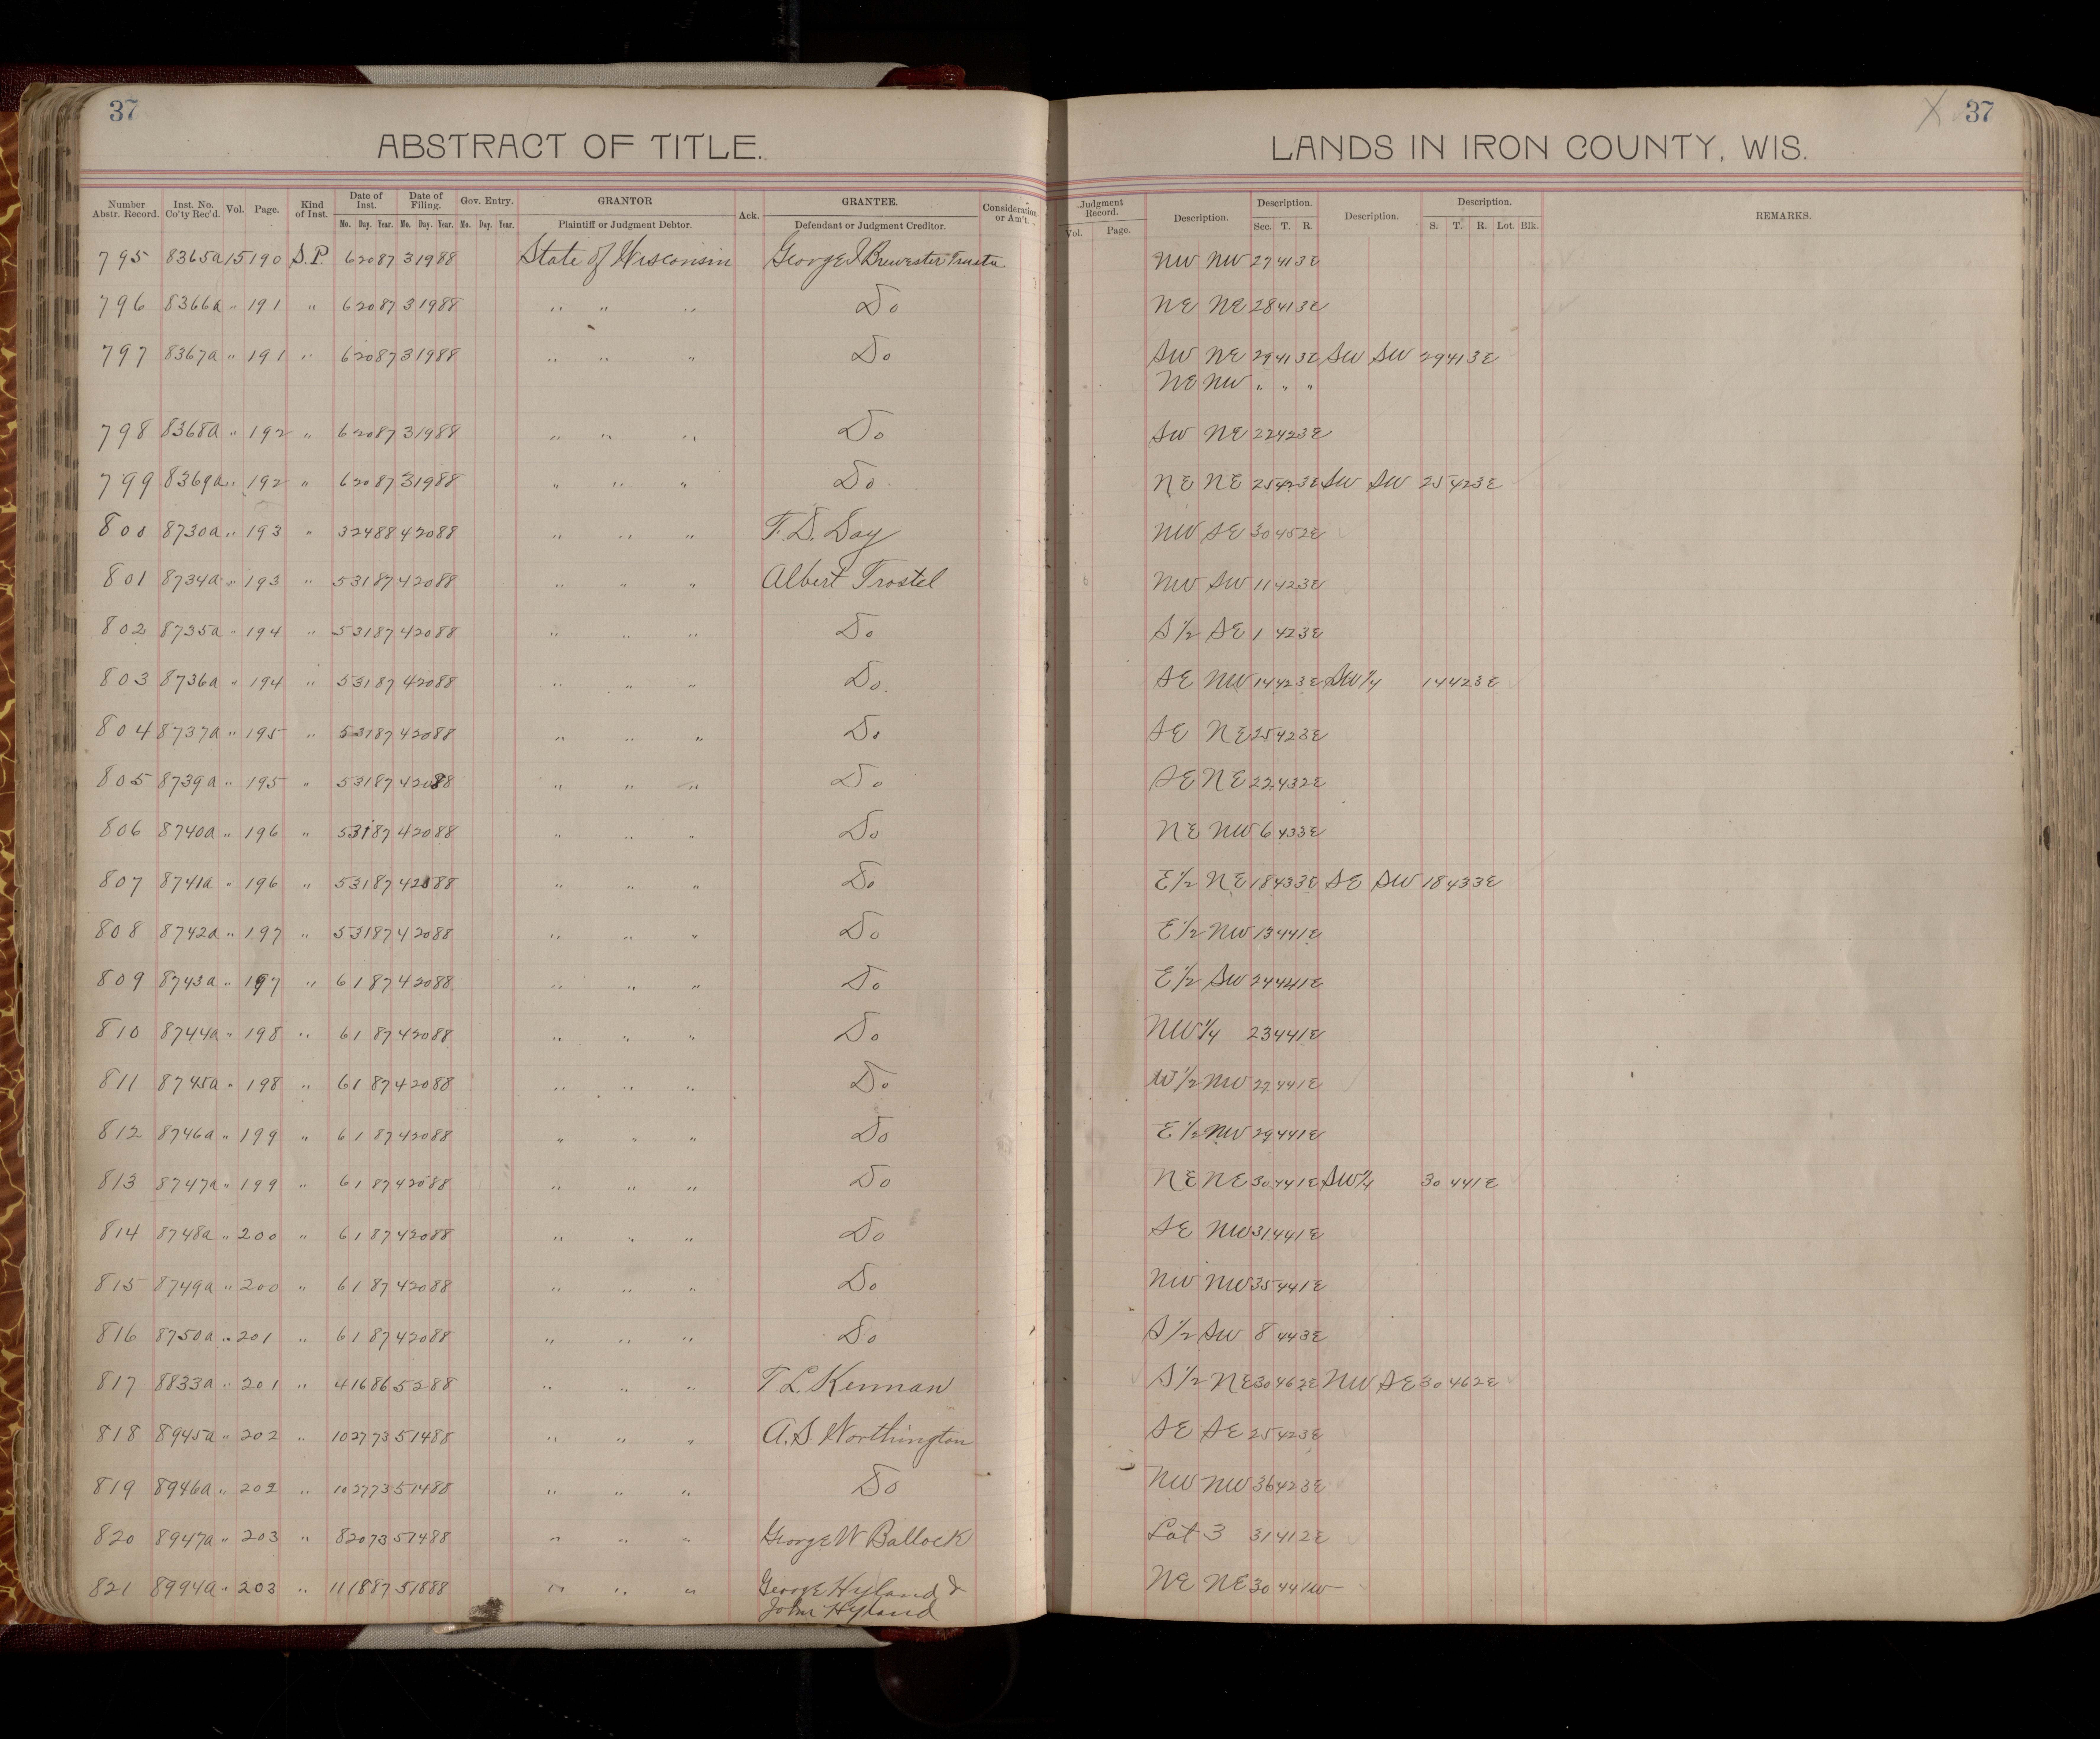 37
ABSTRACT OF TITLE.
Number Abstr. Record. Inst. No. Co'ty Rec'd. Vol. Page. Kind of Inst. Date of Inst. Mo. Day. Year. Date of Filing. Mo. Day. Year. Gov. Entry. Mo. Day. Year. GRANTOR Plaintiff or Judgment Debtor. Ack. GRANTEE. Defendant or Judgment Creditor. Consideration or Am't.
37
LANDS IN IRON COUNTY, WIS.
Judgment Record. Vol. Page. Description. Description. Sec. T. R. Description. Description. S. T. R. Lot. Blk. REMARKS.
795 8365a 15 190 S.P. 6 20 87 3 19 88 State of Wisconsin George I Brewester Trustee NW NW 27 41 3E
796 8366a " 191 " 6 20 87 3 19 88 " " " Do NE NE 28 41 3E
797 8367a " 191 " 6 20 87 3 19 88 " " " Do SW NE 29 41 3E SW SW 29 41 3E
NE NW " " "
798 8368a " 192 " 6 20 87 3 19 88 " " " Do SW NE 22 42 3E
799 8369a " 192 " 6 20 87 3 19 88 " " " Do NE NE 25 42 3E SW SW 25 42 3E
800 8730a " 193 " 3 24 88 4 20 88 " " " F. D. Day NW SE 30 45 2E
801 8734a " 193 " 5 31 87 4 20 88 " " " Albert Trostel NW SW 11 42 3E
802 8735a " 194 " 5 31 87 4 20 88 " " " Do S 1/2 SE 1 42 3E
803 8736a " 194 " 5 31 87 4 20 88 " " " Do SE NW 14 42 3E SW 1/4 14 42 3E
804 8737a " 195 " 5 31 87 4 20 88 " " " Do SE NE 25 42 3E
805 8739a " 195 " 5 31 87 4 20 88 " " " Do SE NE 22 43 2E
806 8740a " 196 " 5 31 87 4 20 88 " " " Do NE NW 6 43 3E
807 8741a " 196 " 5 31 87 4 20 88 " " " Do E 1/2 NE 18 43 3E SE SW 18 43 3E
808 8742a " 197 " 5 31 87 4 20 88 " " " Do E 1/2 NW 13 44 1E
809 8743a " 197 " 6 1 87 4 20 88 " " " Do E 1/2 SW 24 44 1E
810 8744a " 198 " 6 1 87 4 20 88 " " " Do NW 1/4 23 44 1E
811 8745a " 198 " 6 1 87 4 20 88 " " " Do W 1/2 NW 27 44 1E
812 8746a " 199 " 6 1 87 4 20 88 " " " Do E 1/2 NW 29 44 1E
813 8747a " 199 " 6 1 87 4 20 88 " " " Do NE NE 30 44 1E SW 1/4 30 44 1E
814 8748a " 200 " 6 1 87 4 20 88 " " " Do SE NW 31 44 1E
815 8749a " 200 " 6 1 87 4 20 88 " " " Do NW NW 35 44 1E
816 8750a " 201 " 6 1 87 4 20 88 " " " Do S 1/2 SW 8 44 3E
817 8833a " 201 " 4 16 86 5 2 88 " " " T L. Kennan S 1/2 NE 30 46 2E NW SE 30 46 2E
818 8945a " 202 " 10 27 73 5 14 88 " " " A. S. Worthington SE SE 25 42 3E
819 8946a " 202 " 10 27 73 5 14 88 " " " Do NW NW 36 42 3E
820 8947a " 203 " 8 20 73 5 14 88 " " " George W Ballock Lot 3 31 41 2E
821 8994a " 203 " 11 18 87 5 18 88 " " " George Hyland & NE NE 30 44 1W
John Hyland